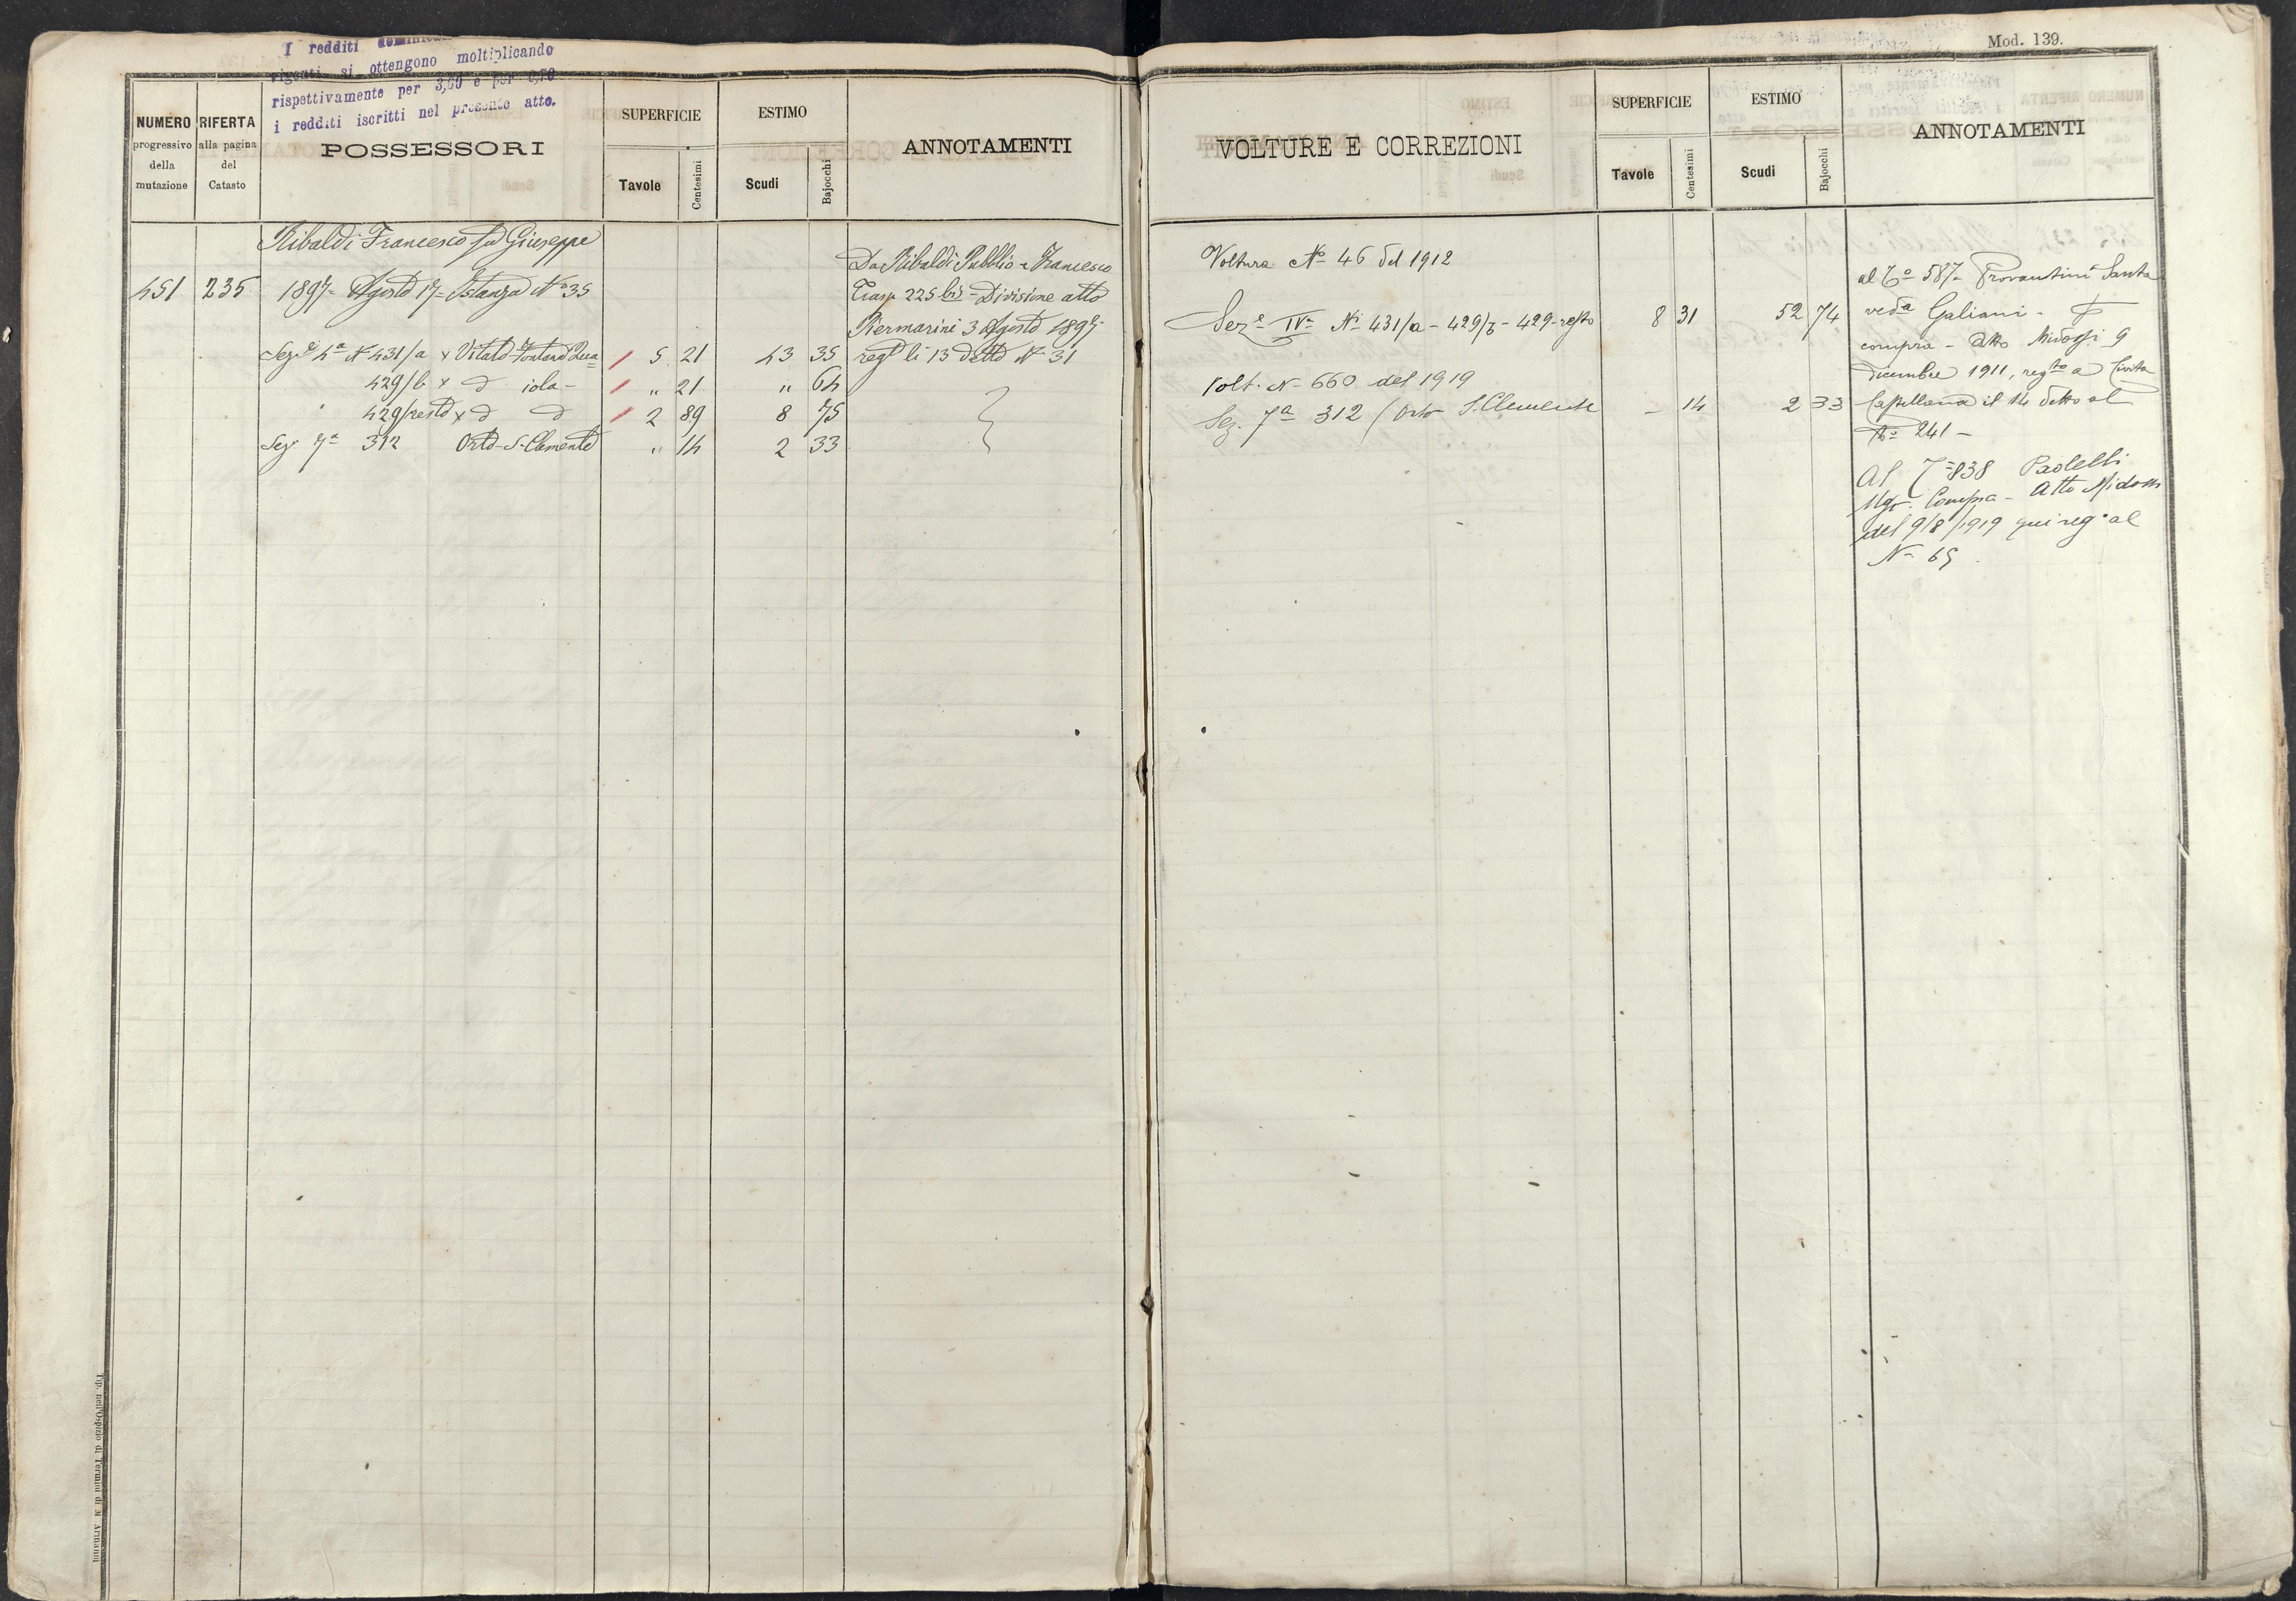 I redditi
vigenti si ottengono moltiplicando
rispettivamente per 3,60 e per 0,70
i redditi iscritti nel presente atto.
NUMERO
progressivo
della
mutazione
RIFERTA
alla pagina
del
Catasto
POSSESSORI
SUPERFICIE
Tavole
Centesimi
ESTIMO
Scudi
Bajocchi
ANNOTAMENTI
Ribaldi Francesco fu Giuseppe
451 235 1897 - Agosto 17 = Istanza N° 35
Sez.e 4a N 431/a x Vitato Fontana Qua= 5 21 43 35
429/b x d iola - " 21 " 64
429/resto x d d 2 89 8 75
Sez. 7a 312 Orto S. Clemente " 14 2 33
Da Ribaldi Pubblio e Francesco
Trasp 225 bis - Divisione atto
Piermarini 3 Agosto 1897-
regto li 13 detto N. 31
Tip. nell'Ospizio di Termini di
Mod. 139.
VOLTURE E CORREZIONI
SUPERFICIE
Tavole
Centesimi
ESTIMO
Scudi
Bajocchi
ANNOTAMENTI
Voltura No 46 del 1912
Seze IVa Ni 431/a - 429/b - 429-resto 8 31 52 74
Volt. N- 660 del 1919
Sez. 7a 312 (Orto S. Clemente - 14 2 33
al To 587- Provantini Santa
veda Galiani -
compra - Atto Midossi 9
dicembre 1911, regto a Civita
Castellana il 14 detto al
No 241 -
Al T= 838 Paoletti
Compra - Atto Midossi
del 9/8/1919 qui rego al
N- 65